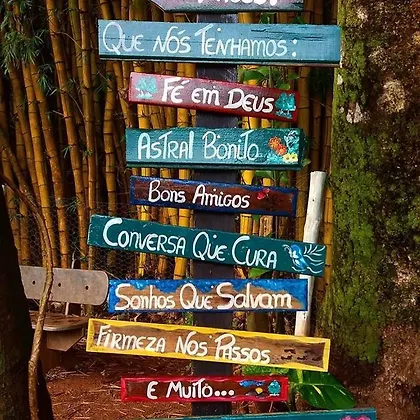 Que Nós Tenhamos:
Fé em Deus
Astral Bonito
Bons Amigos
Conversa Que Cura
Sonhos Que Salvam
Firmeza Nos Passos
E Muito...